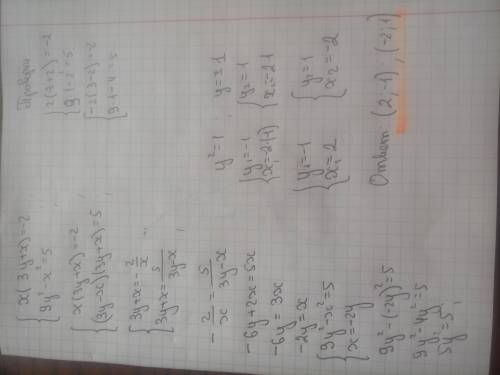 { x(3y+x)=-2
9y²-x²=5 ;
{ x(3y+x)=-2
(3y-x)(3y+x)=5 ;
{ 3y+x=-2/x
3y+x=5/(3y-x) ;
-2/x=5/(3y-x)
-6y+2x=5x
-6y=3x
-2y=x
{ 9y²-x²=5
x=-2y
9y²-(-2y)²=5
9y²-4y²=5
5y²=5 ;
y²=1 ; y=±1
{ y₁=-1
x₁=-2·(-1)
{ y₂=1
x₂=-2·1
{ y₁=-1
x₁=2
{ y₂=1
x₂=-2
Ответ: (2;-1) ; (-2;1)
Проверка
{ 2(-3+2)=-2
9·1-2²=5
{ -2(3-2)=-2
9·1-4=5